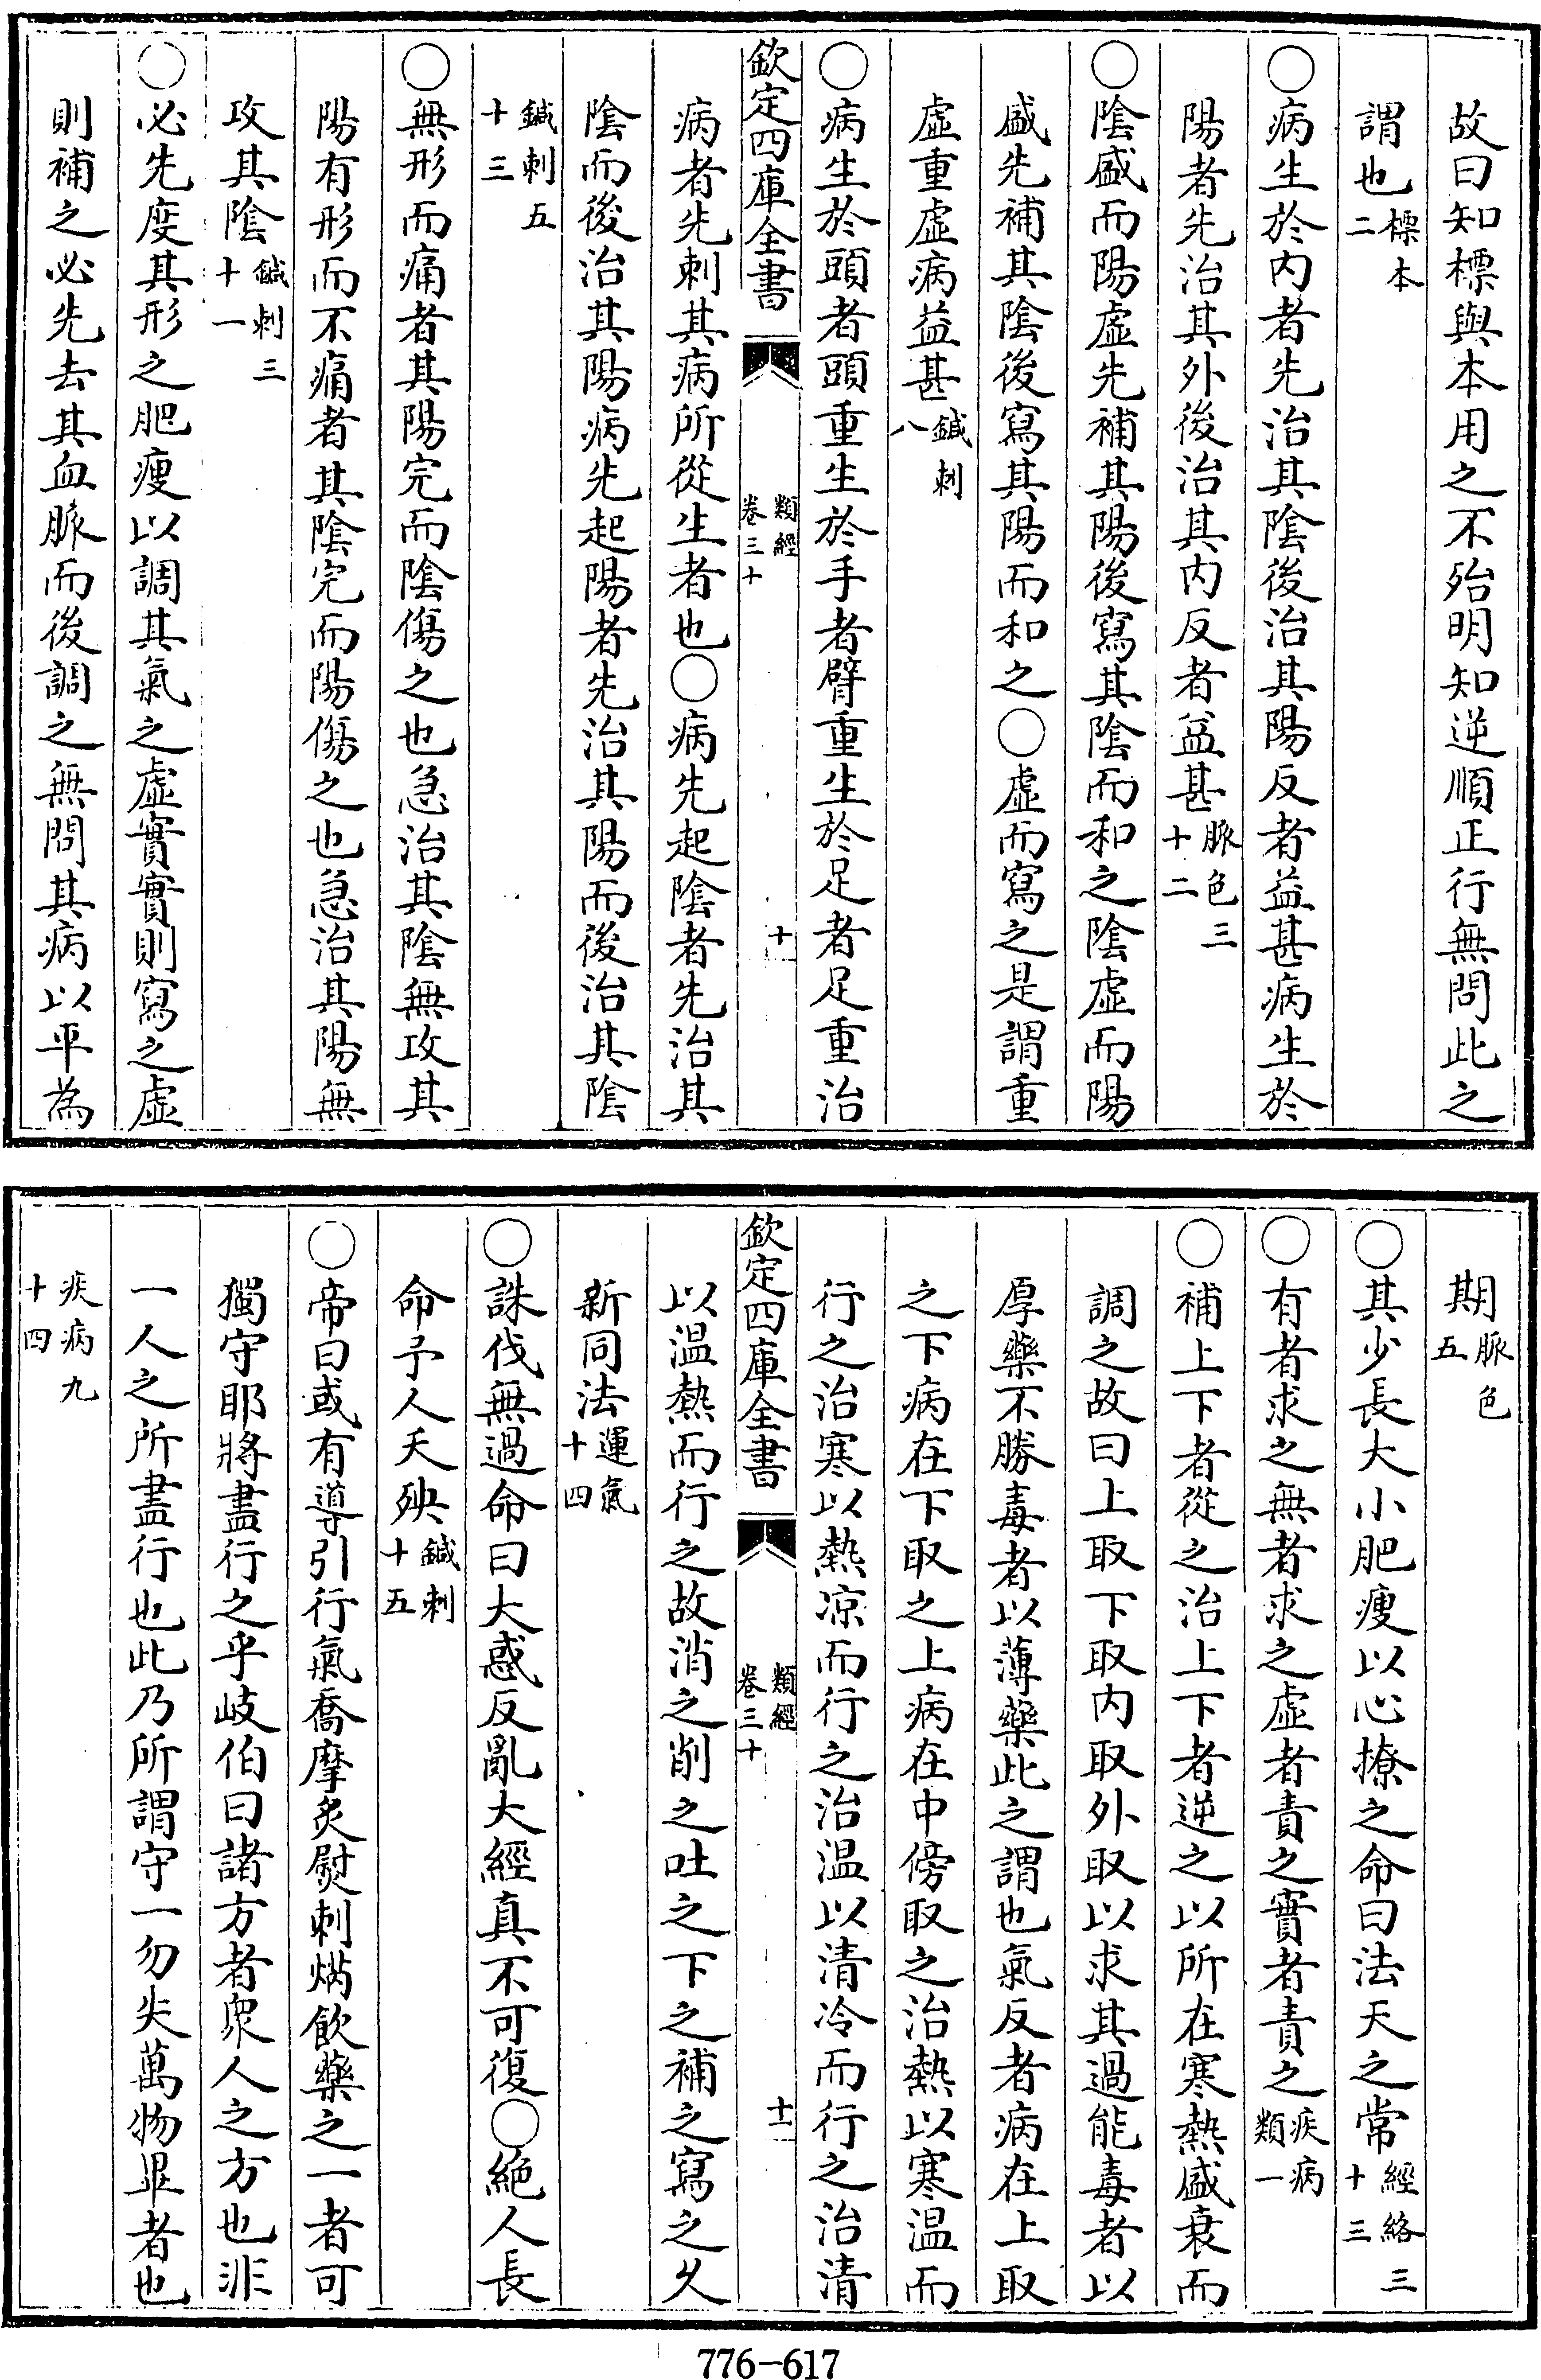 故曰知標與本用之不殆明知逆順正行無問此之
謂也標本二
○病生於內者先治其陰後治其陽反者益甚病生於
陽者先治其外後治其內反者益甚脈色三十二
○陰盛而陽虛先補其陽後寫其陰而和之陰虛而陽
盛先補其陰後寫其陽而和之○虛而寫之是謂重
虛重虛病益甚鍼刺八
○病生於頭者頭重生於手者臂重生於足者足重治
欽定四庫全書 類經卷三十 十
病者先刺其病所從生者也○病先起陰者先治其
陰而後治其陽病先起陽者先治其陽而後治其陰
鍼刺五十三
○無形而痛者其陽完而陰傷之也急治其陰無攻其
陽有形而不痛者其陰完而陽傷之也急治其陽無
攻其陰鍼刺三十一
○必先度其形之肥瘦以調其氣之虛實實則寫之虛
則補之必先去其血脈而後調之無問其病以平為
期脈色五
○其少長大小肥瘦以心撩之命曰法天之常經絡三十三
○有者求之無者求之虛者責之實者責之疾病類一
○補上下者從之治上下者逆之以所在寒熱盛衰而
調之故曰上取下取內取外取以求其過能毒者以
厚藥不勝毒者以薄藥此之謂也氣反者病在上取
之下病在下取之上病在中傍取之治熱以寒溫而
行之治寒以熱凉而行之治溫以清冷而行之治清
欽定四庫全書 類經卷三十 十一
以溫熱而行之故消之削之吐之下之補之寫之久
新同法運氣十四
○誅伐無過命曰大惑反亂大經真不可復○絶人長
命予人夭殃鍼刺十五
○帝曰或有導引行氣喬摩炙熨刺焫飲藥之一者可
獨守耶將盡行之乎岐伯曰諸方者眾人之方也非
一人之所盡行也此乃所謂守一勿失萬物畢者也
疾病九十四
776-617